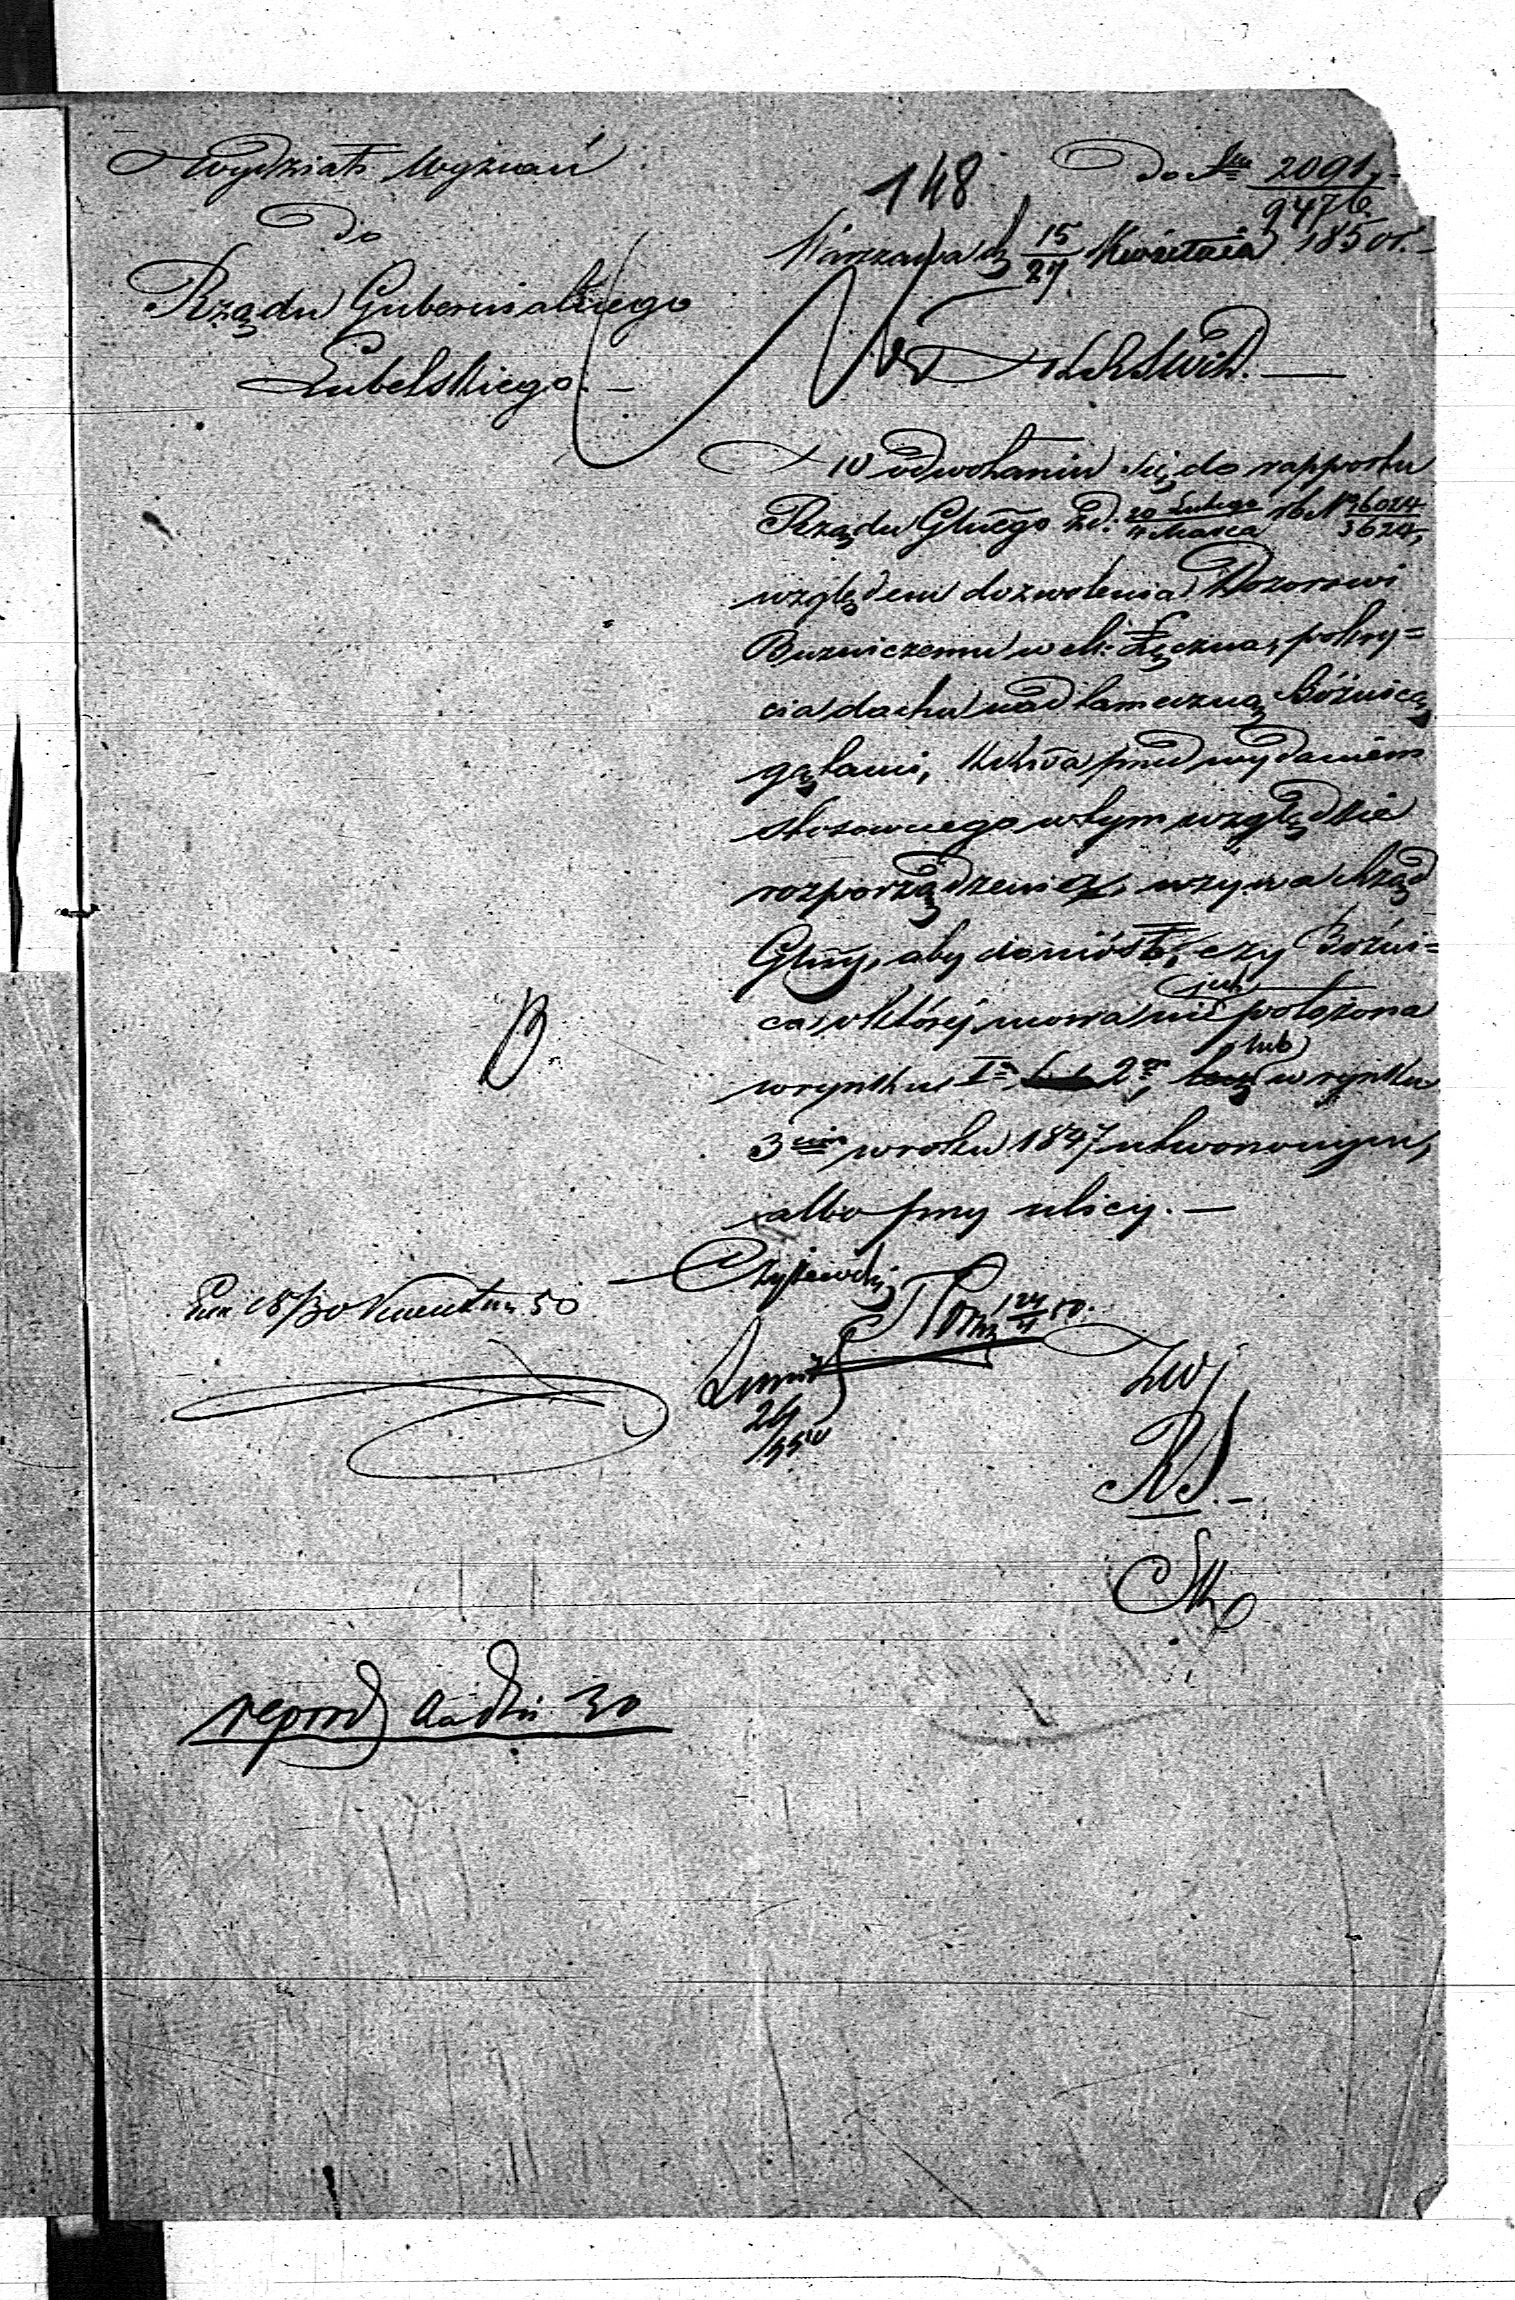 Wydział Wyznań
Do
Rządu Gubernialnego
Lubelskiego. —
148
Do Nru 2091,
9476.
Warszawa d. 15/27 Kwietnia 1850 r. —
W odwołaniu się do rapportu
Rządu Gluego z d: 20 Lutego / 4 Marca rb. N 26024/3624,
względem dozwolenia Dozorowi
Buzniczemu w m: Łęczna, pokry=
cia dachu nad tameczną Bóżnicą
gątami, KRSWiD przed wydaniem
stosownego w tym względzie
rozporządzenia, wzywa Rząd
Glny, aby doniósł, czy Bóżni=
ca o której mowa jest położona
w rynku I 2m, lub w rynku
3cim w roku 1847 utworzonym,
albo przy ulicy. —
Czyżewski
18/30 Kwietnia 50
24/4 50.
24
RS. —
30